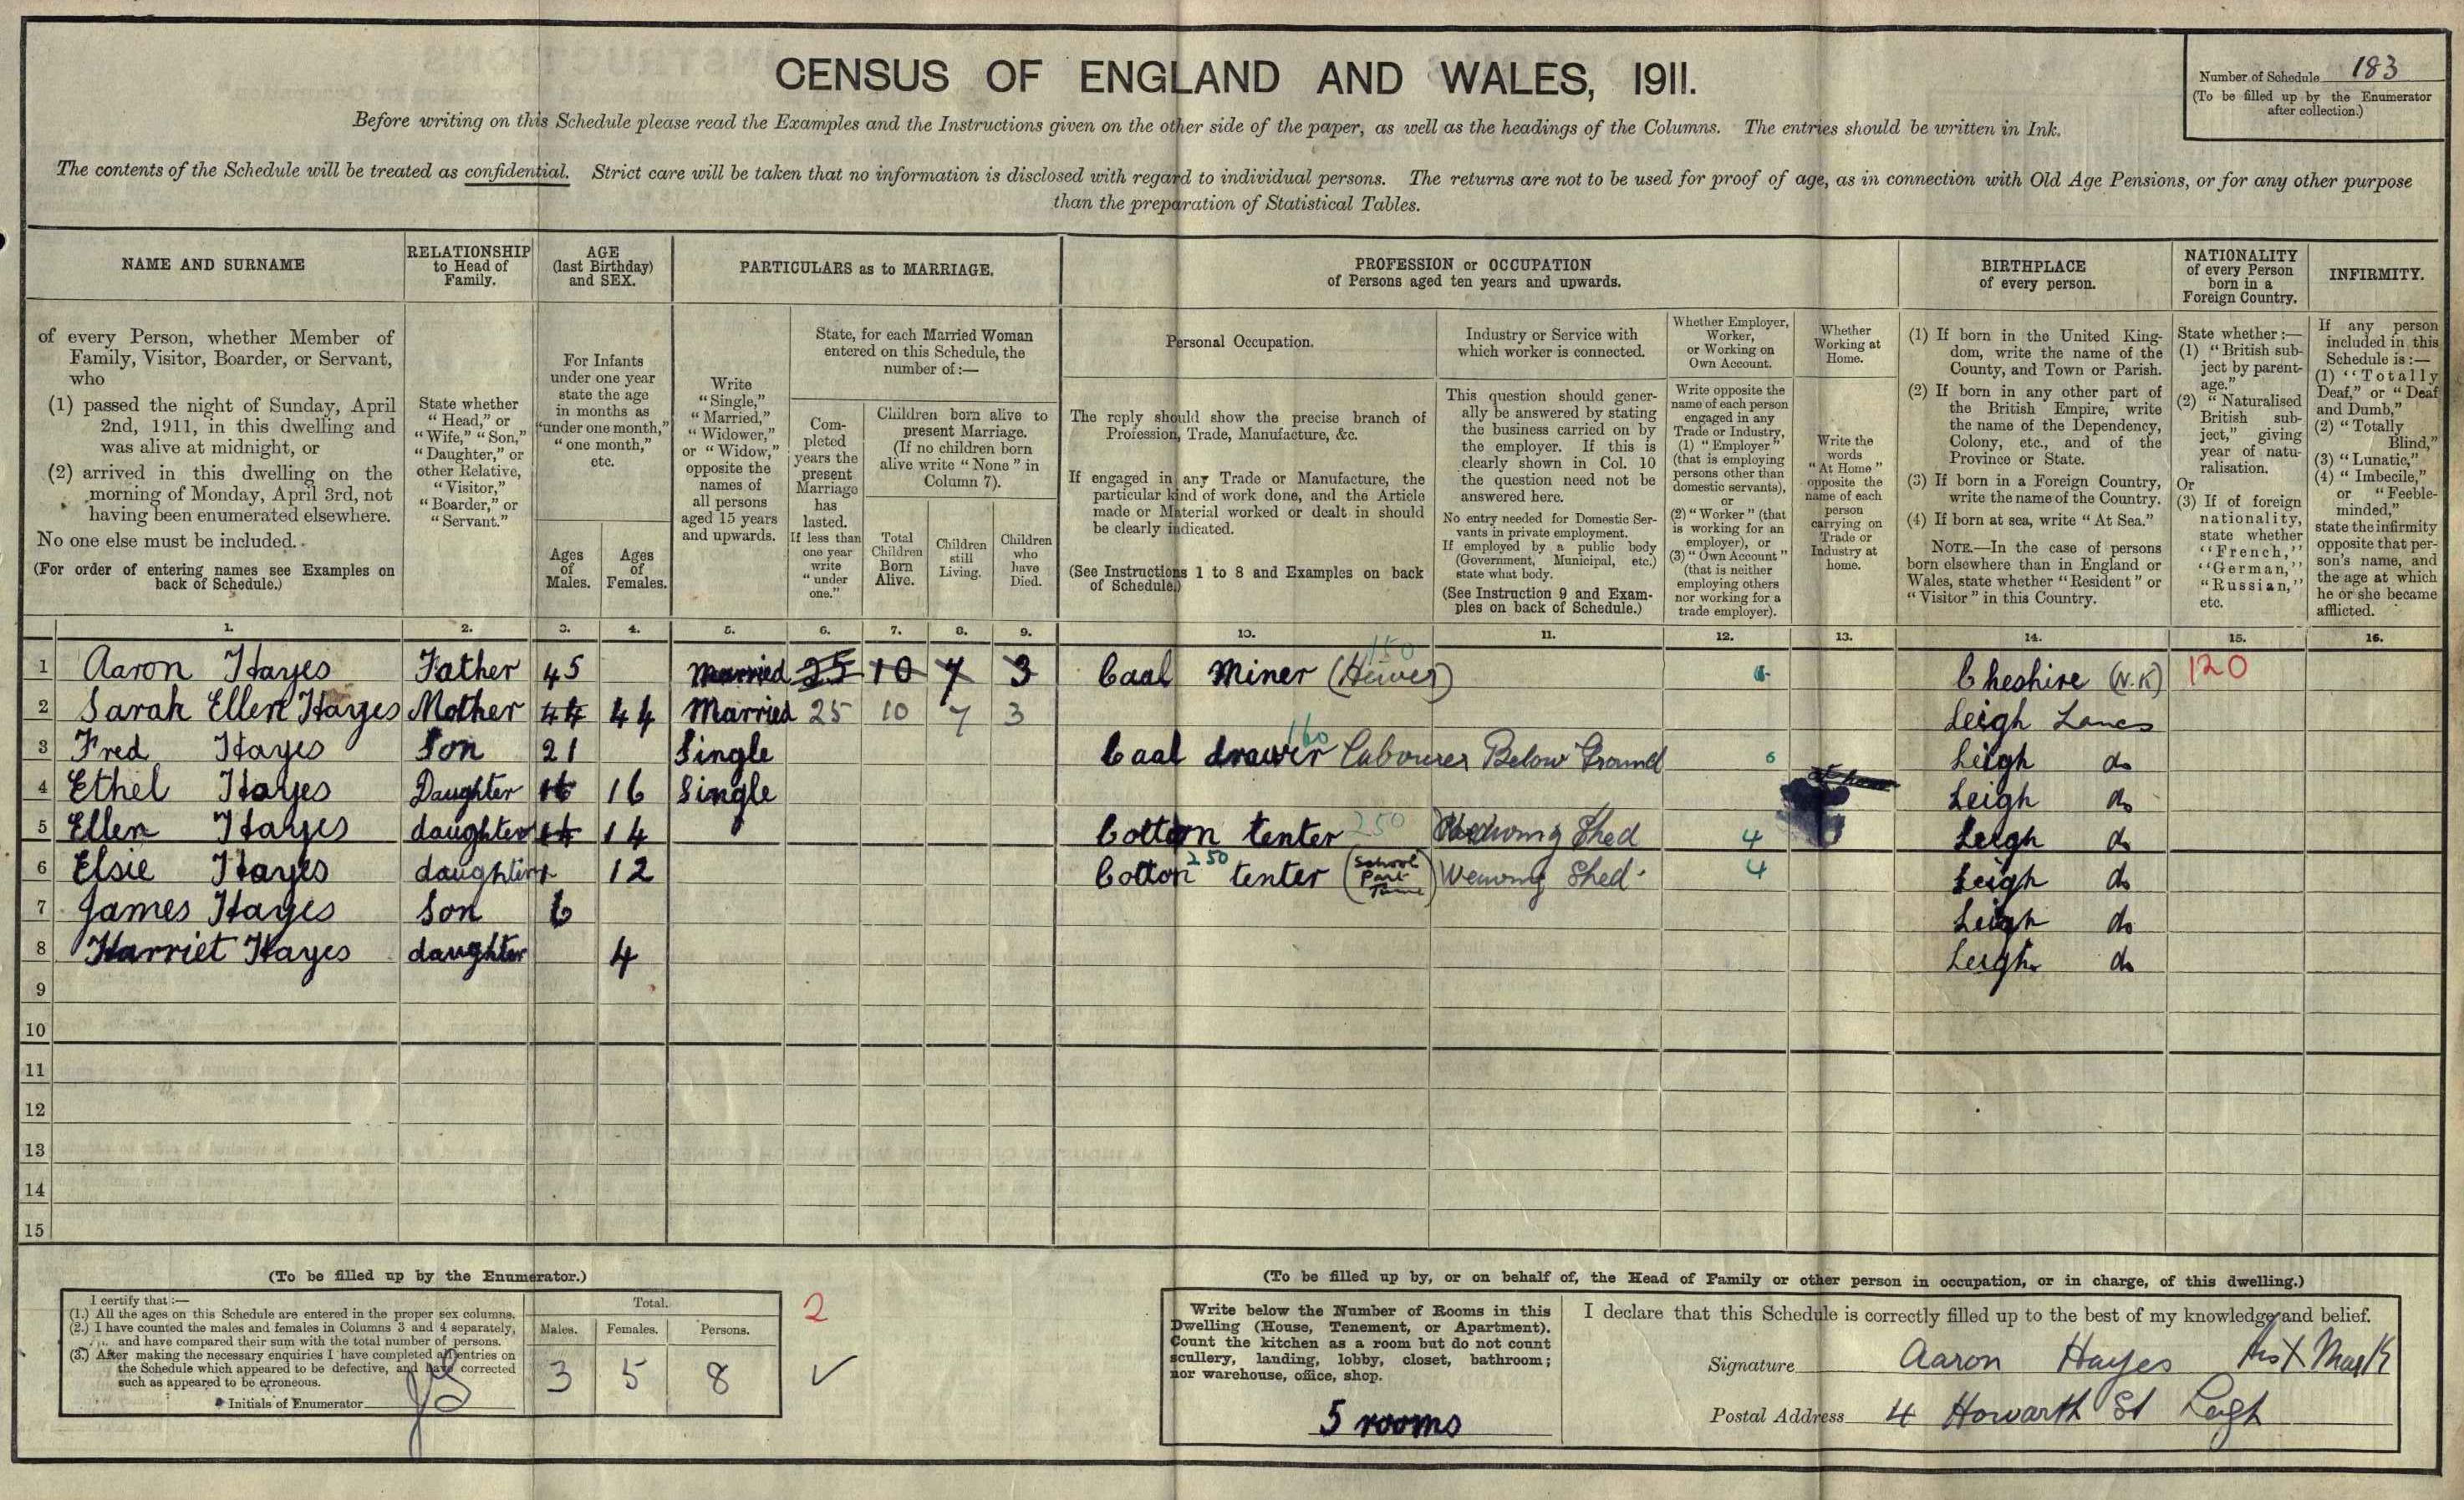 CENSUS OF ENGLAND AND WALES, 1911.
Number of Schedule 183
(To be filled up by the Enumerator
after collection.)
Before writing on this Schedule please read the Examples and the Instructions given on the other side of the paper, as well as the headings of the Columns. The entries should be written in Ink.
The contents of the Schedule will be treated as confidential. Strict care will be taken that no information is disclosed with regard to individual persons. The returns are not to be used for proof of age, as in connection with Old Age Pensions, or for any other purpose
than the preparation of Statistical Tables.
NAME AND SURNAME
of every Person, whether Member of
Family, Visitor, Boarder, or Servant,
who
(1) passed the night of Sunday, April
2nd, 1911, in this dwelling and
was alive at midnight, or
(2) arrived in this dwelling on the
morning of Monday, April 3rd, not
having been enumerated elsewhere.
No one else must be included.
(For order of entering names see Examples on
back of Schedule.)
RELATIONSHIP
to Head of
Family.
State whether
"Head," or
"Wife," "Son,"
"Daughter," or
other Relative,
"Visitor,"
"Boarder," or
"Servant."
AGE
(last Birthday)
and SEX.
For Infants
under one year
state the age
in months as
"under one month,"
"one month,"
etc.
Ages
of
Males.
Ages
of
Females.
PARTICULARS as to MARRIAGE.
Write
"Single,"
"Married,"
"Widower,"
or "Widow,"
opposite the
names of
all persons
aged 15 years
and upwards.
State, for each Married Woman
entered on this Schedule, the
number of:—
Com-
pleted
years the
present
Marriage
has
lasted.
If less than
one year
write
"under
one."
Children born alive to
present Marriage.
(If no children born
alive write "None" in
Column 7).
Total
Children
Born
Alive.
Children
still
Living.
Children
who
have
Died.
PROFESSION or OCCUPATION
of Persons aged ten years and upwards.
Personal Occupation.
The reply should show the precise branch of
Profession, Trade, Manufacture, &c.
If engaged in any Trade or Manufacture, the
particular kind of work done, and the Article
made or Material worked or dealt in should
be clearly indicated.
(See Instructions 1 to 8 and Examples on back
of Schedule.)
Industry or Service with
which worker is connected.
This question should gener-
ally be answered by stating
the business carried on by
the employer. If this is
clearly shown in Col. 10
the question need not be
answered here.
No entry needed for Domestic Ser-
vants in private employment.
If employed by a public body
(Government, Municipal, etc.)
state what body.
(See Instruction 9 and Exam-
ples on back of Schedule.)
Whether Employer,
Worker,
or Working on
Own Account.
Write opposite the
name of each person
engaged in any
Trade or Industry,
(1) "Employer"
(that is employing
persons other than
domestic servants),
or
(2) "Worker" (that
is working for an
employer), or
(3) "Own Account"
(that is neither
employing others
nor working for a
trade employer).
Whether
Working at
Home.
Write the
words
"At Home"
opposite the
name of each
person
carrying on
Trade or
Industry at
home.
BIRTHPLACE
of every person.
(1) If born in the United King-
dom, write the name of the
County, and Town or Parish.
(2) If born in any other part of
the British Empire, write
the name of the Dependency,
Colony, etc., and of the
Province or State.
(3) If born in a Foreign Country,
write the name of the Country.
(4) If born at sea, write "At Sea."
NOTE.—In the case of persons
born elsewhere than in England or
Wales, state whether "Resident" or
"Visitor" in this Country.
NATIONALITY
of every Person
born in a
Foreign Country.
State whether:—
(1) "British sub-
ject by parent-
age."
(2) "Naturalised
British sub-
ject," giving
year of natu-
ralisation.
Or
(3) If of foreign
nationality,
state whether
"French,"
"German,"
"Russian,"
etc.
INFIRMITY.
If any person
included in this
Schedule is:—
(1) "Totally
Deaf," or "Deaf
and Dumb,"
(2) "Totally
Blind,"
(3) "Lunatic,"
(4) "Imbecile,"
or "Feeble-
minded,"
state the infirmity
opposite that per-
son's name, and
the age at which
he or she became
afflicted.
1. 2. 3. 4. 5. 6. 7. 8. 9. 10. 11. 12. 13. 14. 15. 16.
1 Aaron Hayes Father 45 Married 25 10 7 3 Coal Miner (Hewer) 150 Cheshire (N.K) 120
2 Sarah Ellen Hayes Mother 44 44 Married 25 10 7 3 Leigh Lancs
3 Fred Hayes Son 21 Single Coal drawer 160 Labourer Below Ground 6 Leigh do
4 Ethel Hayes Daughter 16 16 Single Leigh do
5 Ellen Hayes daughter 14 14 Cotton tenter 250 Weaving Shed 4 Leigh do
6 Elsie Hayes daughter 12 Cotton 250 tenter (School Part Time) Weaving Shed 4 Leigh do
7 James Hayes Son 6 Leigh do
8 Harriet Hayes daughter 4 Leigh do
9
10
11
12
13
14
15
(To be filled up by the Enumerator.)
I certify that:—
(1.) All the ages on this Schedule are entered in the proper sex columns.
(2.) I have counted the males and females in Columns 3 and 4 separately,
and have compared their sum with the total number of persons.
(3.) After making the necessary enquiries I have completed all entries on
the Schedule which appeared to be defective, and have corrected
such as appeared to be erroneous.
Initials of Enumerator
Total.
Males. Females. Persons.
3 5 8
2
(To be filled up by, or on behalf of, the Head of Family or other person in occupation, or in charge, of this dwelling.)
Write below the Number of Rooms in this
Dwelling (House, Tenement, or Apartment).
Count the kitchen as a room but do not count
scullery, landing, lobby, closet, bathroom;
nor warehouse, office, shop.
5 rooms
I declare that this Schedule is correctly filled up to the best of my knowledge and belief.
Signature Aaron Hayes his X Mark
Postal Address 4 Howarth St Leigh